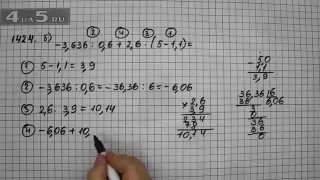 4a5.ru
② ④ ③ ①
1424. б) -3,636 : 0,6 + 2,6 · (5-1,1)=
① 5-1,1 = 3,9
② -3,636 : 0,6 = -36,36 : 6 = -6,06
③ 2,6 · 3,9 = 10,14
④ -6,06 + 10,
-5,0
1,1
3,9
× 2,6
3,9
234
78
10,14
36,36 | 6
36 | 6,06
36
36
0